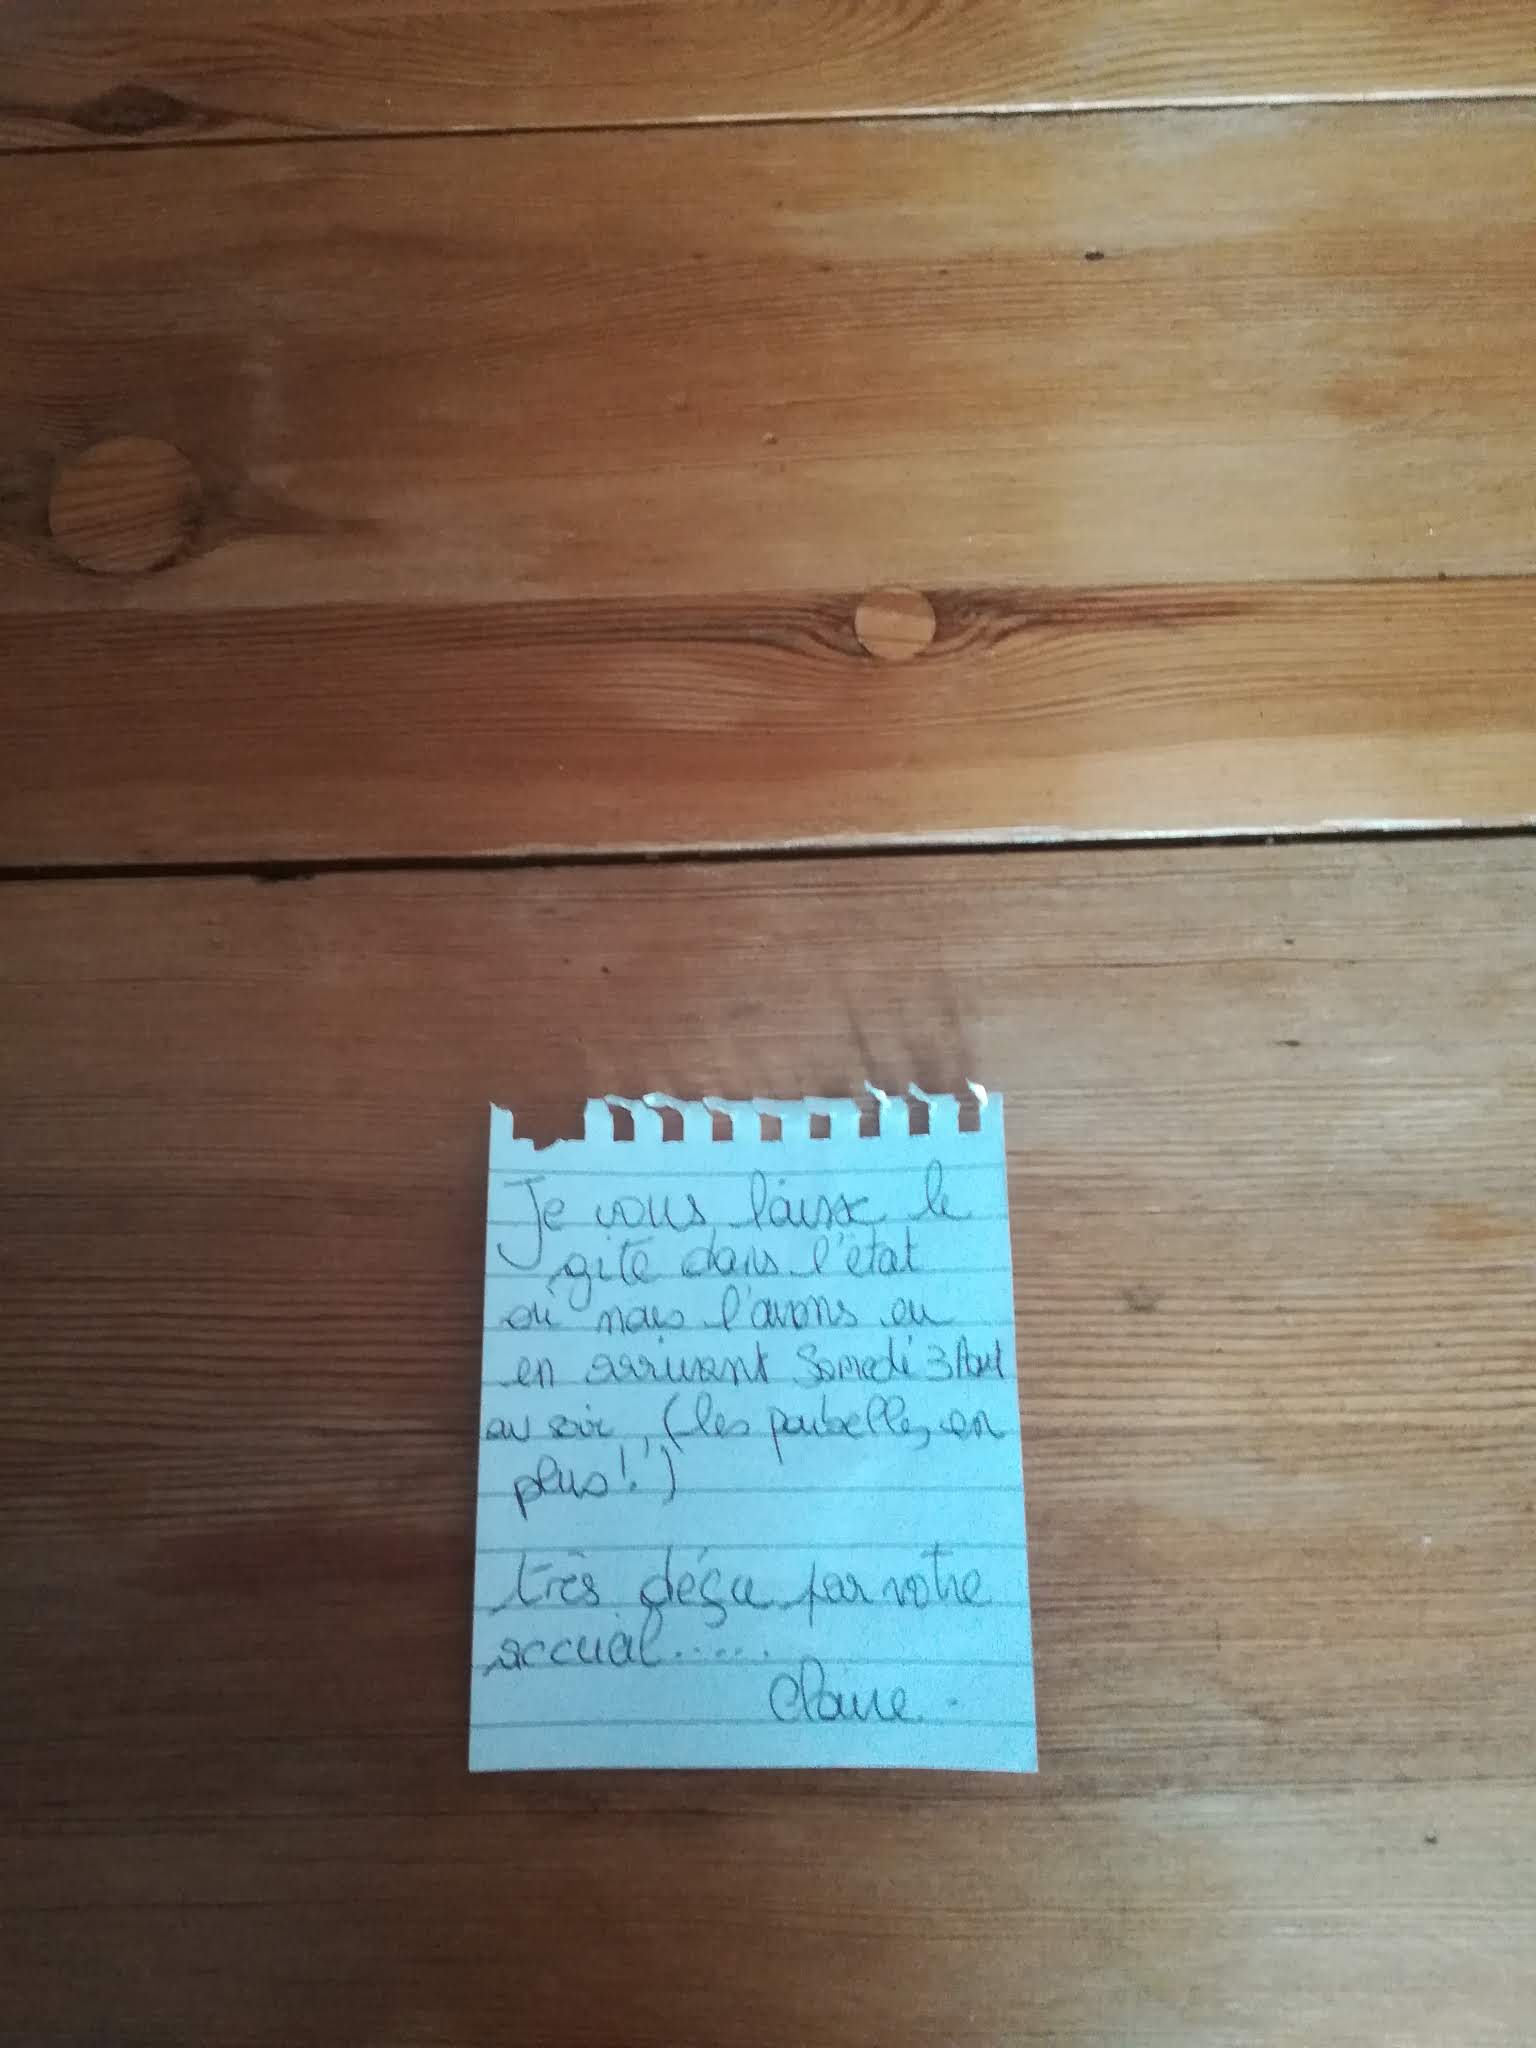 Je vous laisse le
gîte dans l'état
où nous l'avons eu
en arrivant Samedi 3 Aout
au soir, (les poubelles, en
plus!!)
très déçu par votre
accueil.....
Claire.